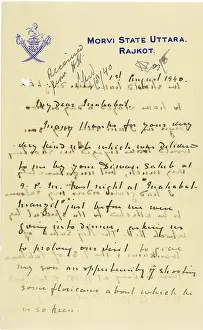 MORVI STATE UTTARA,
RAJKOT.
Received
1st August 1940.
My dear Mahabat
Many thanks for your very
very kind note which was delivered
to me by your Dewan Sahib at
9. P.M. last night at "Mahabat
Manzil" just before we were
going into dinner, asking us
to prolong our visit to give
my son an opportunity of shooting
some floricans about which he
is so keen.